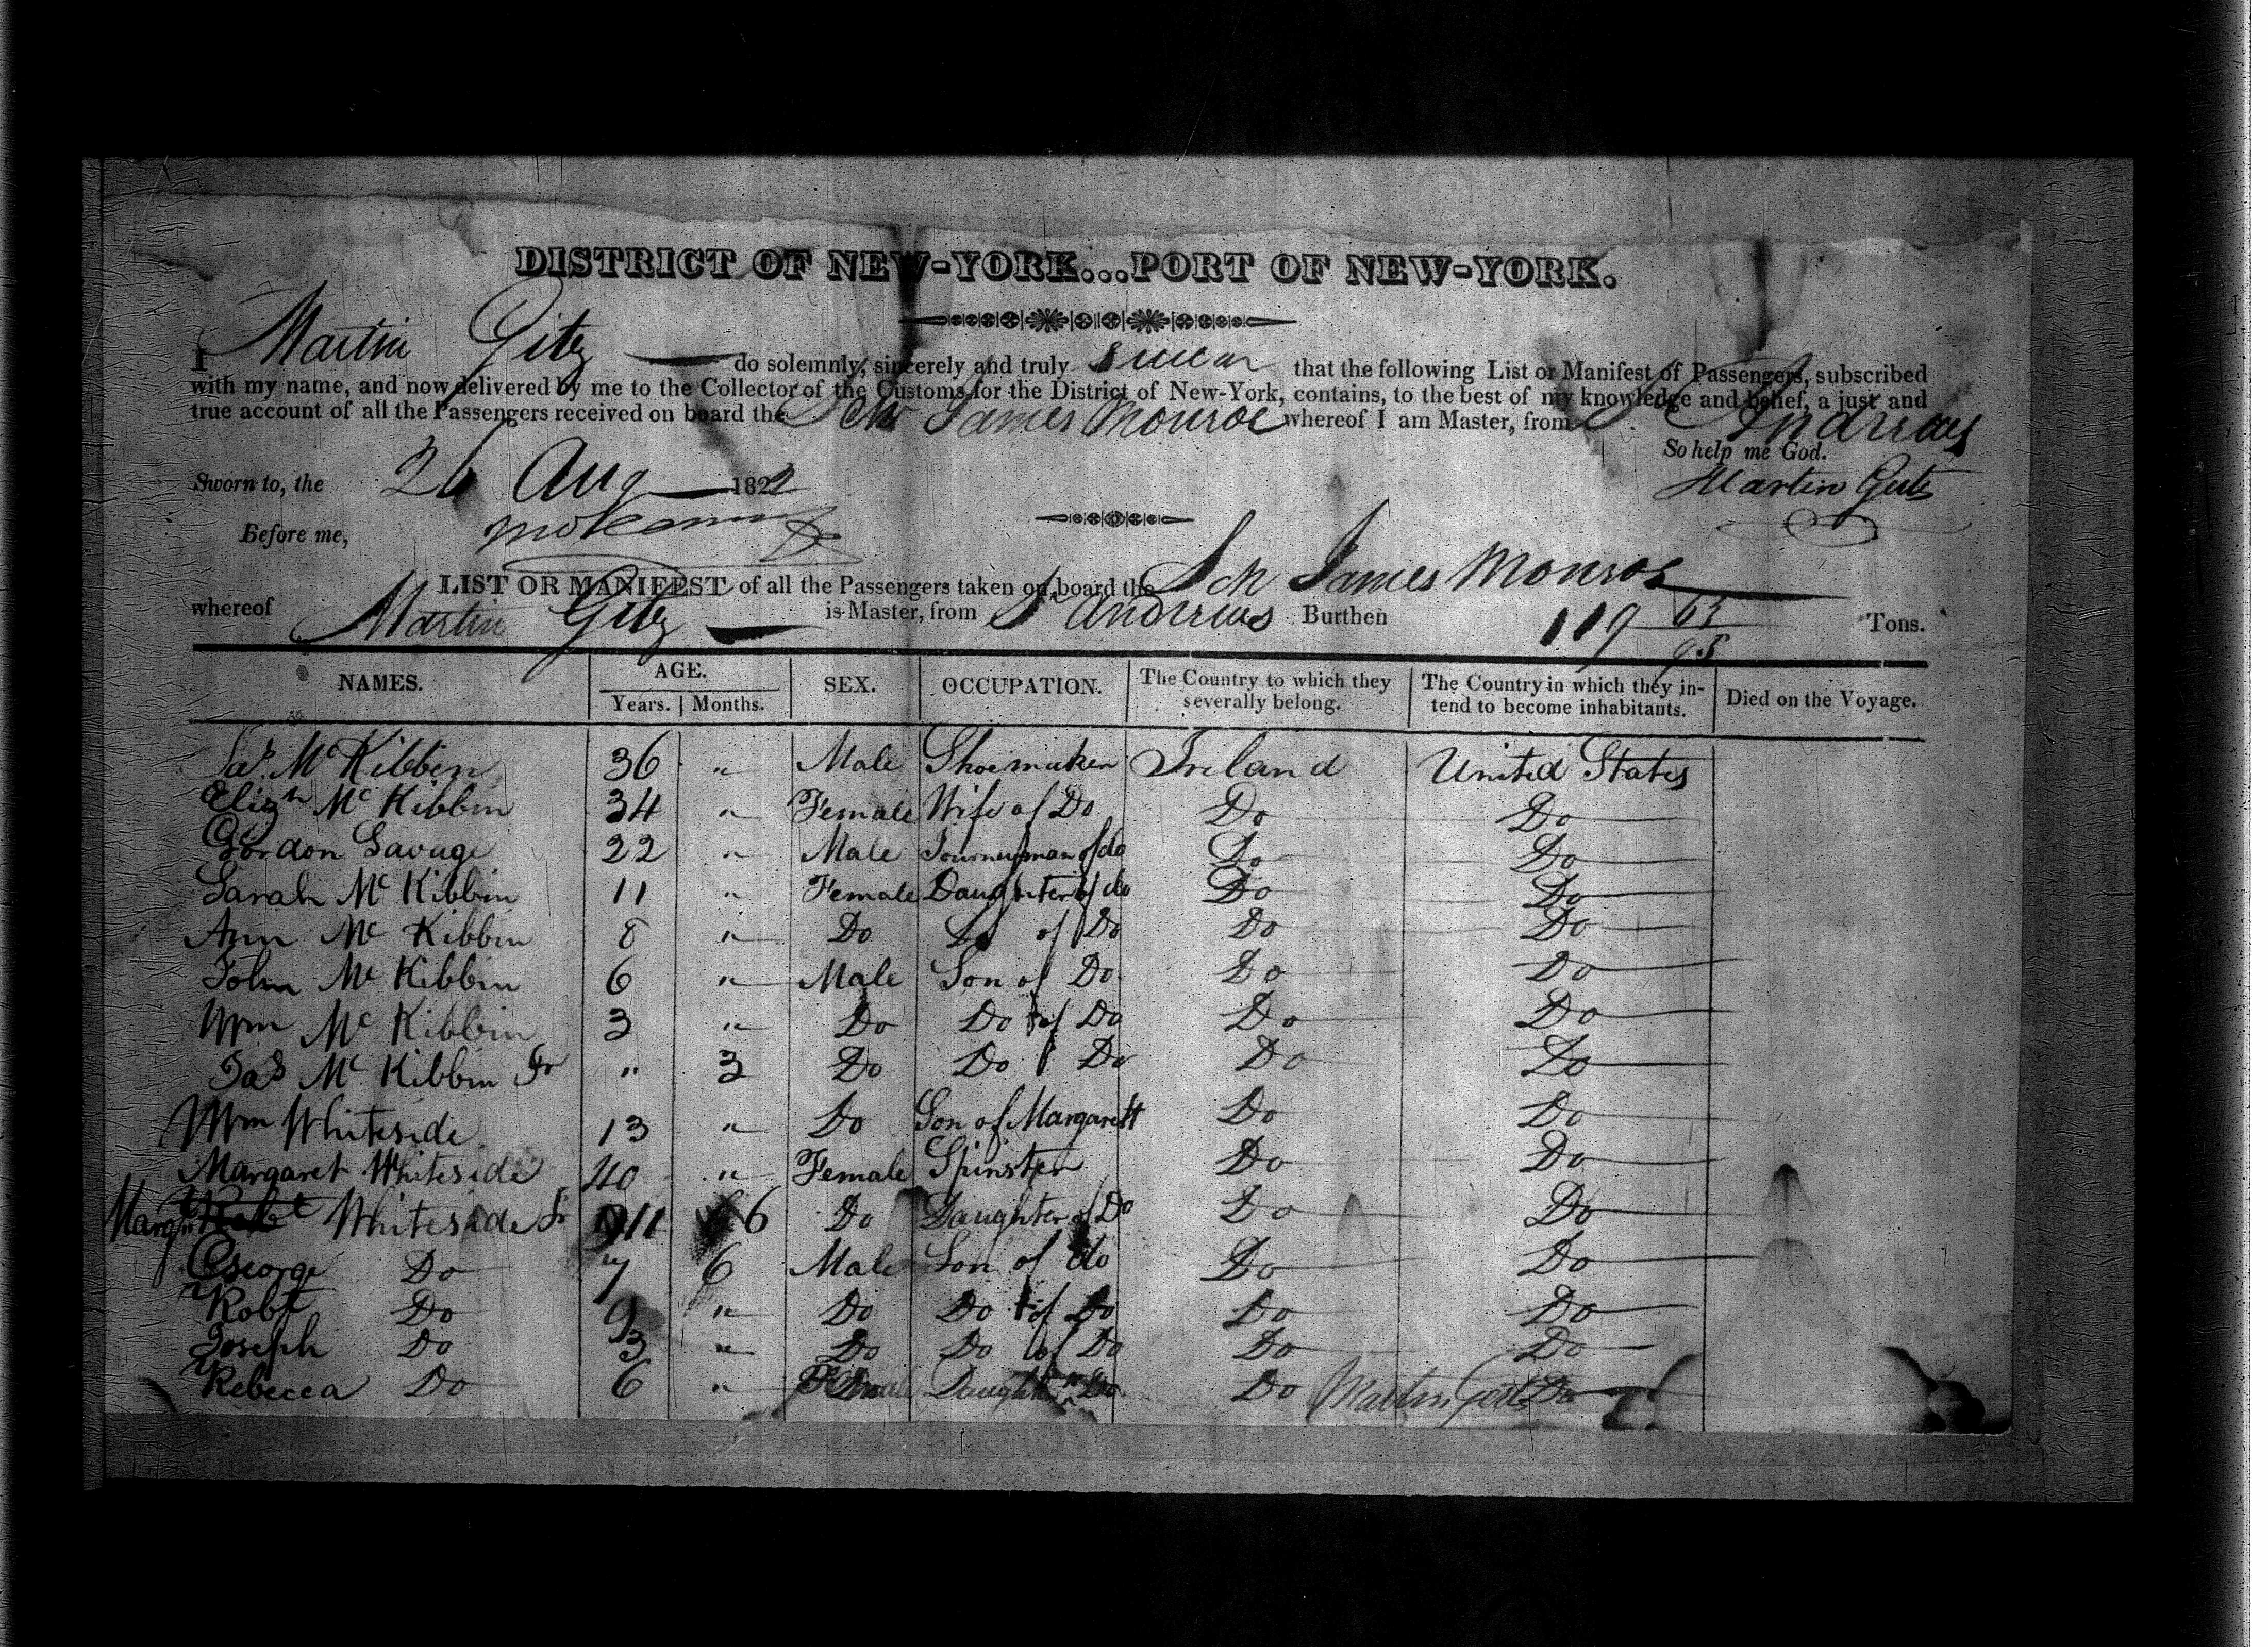 DISTRICT OF NEW-YORK...PORT OF NEW-YORK.
I Martin Gitz do solemnly, sincerely and truly swear that the following List or Manifest of Passengers, subscribed
with my name, and now delivered by me to the Collector of the Customs for the District of New-York, contains, to the best of my knowledge and belief, a just and
true account of all the Passengers received on board the Schr James Monroe whereof I am Master, from St Andrews
So help me God.
Sworn to, the 26 Aug 1822
Martin Gitz
Before me,
LIST OR MANIFEST of all the Passengers taken on board the Sch James Monroe
whereof Martin Gitz is Master, from St Andrews Burthen 119 63/95 Tons.
NAMES. AGE. Years. Months. SEX. OCCUPATION. The Country to which they severally belong. The Country in which they intend to become inhabitants. Died on the Voyage.
Jas. Mc Kibbin 36 " Male Shoemaker Ireland United States
Elizth Mc Kibbin 34 " Female Wife of Do Do Do
Gordon Savage 22 " Male Journeyman of do Do Do
Sarah Mc Kibbin 11 " Female Daughter of do Do Do
Ann Mc Kibbin 8 " Do Do of Do Do Do
John Mc Kibbin 6 " Male Son of Do Do Do
Wm Mc Kibbin 3 " Do Do of Do Do Do
Jas Mc Kibbin Jr " 3 Do Do Do Do Do
Wm Whiteside 13 " Do Son of Margarett Do Do
Margaret Whiteside 40 " Female Spinster Do Do
Margt Whiteside Jr 11 6 Do Daughter of Do Do Do
George Do 7 6 Male Son of do Do Do
Robt Do 9 " Do Do of Do Do Do
Joseph Do 3 " Do Do of Do Do Do
Rebecca Do 6 " Female Daughtr Do Do Do
Martin Gitz